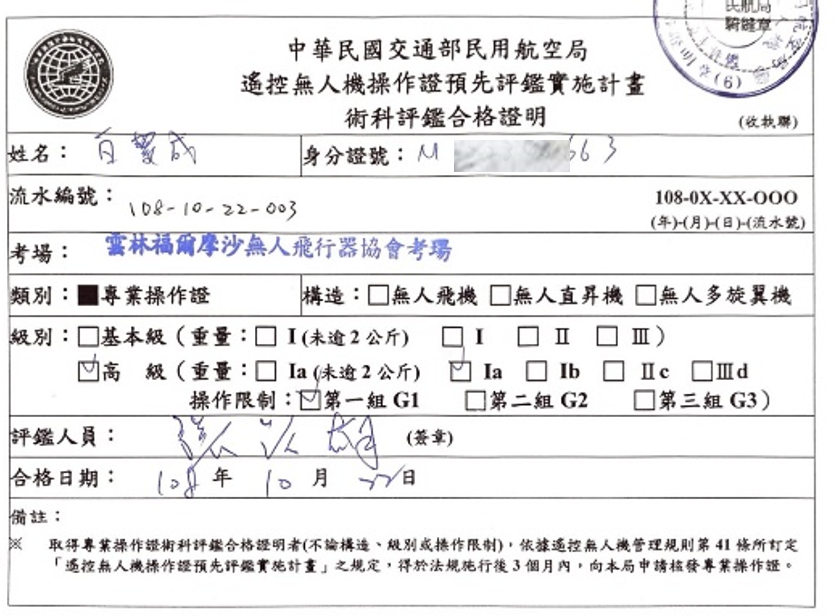 民航局
騎縫章
(6)
中華民國交通部民用航空局
遙控無人機操作證預先評鑑實施計畫
術科評鑑合格證明
(收執聯)
姓名： 身分證號： M 663
流水編號： 108-10-22-003 108-0X-XX-OOO
(年)-(月)-(日)-(流水號)
考場： 雲林福爾摩沙無人飛行器協會考場
類別：■專業操作證 構造：□無人飛機 □無人直昇機 □無人多旋翼機
級別：□基本級（重量：□ I (未逾2公斤) □ I □ II □ III）
☑高 級（重量：□ Ia (未逾2公斤) ☑ Ia □ Ib □ IIc □IIId
操作限制：☑第一組 G1 □第二組 G2 □第三組 G3）
評鑑人員： (簽章)
合格日期： 108 年 10 月 22 日
備註：
※ 取得專業操作證術科評鑑合格證明者(不論構造、級別或操作限制)，依據遙控無人機管理規則第 41 條所訂定
「遙控無人機操作證預先評鑑實施計畫」之規定，得於法規施行後 3 個月內，向本局申請核發專業操作證。